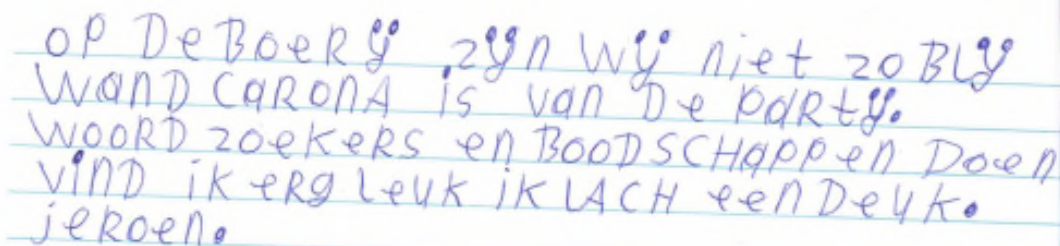 OP DEBOERIJ ZIJN WIJ niet zo BLIJ
WAND CARONA is van De PARTIJ.
WOORD zoekers en BOODSCHAPPEN DOEN
VIND ik erg LEUK ik LACH eenDeuk.
jeroen.